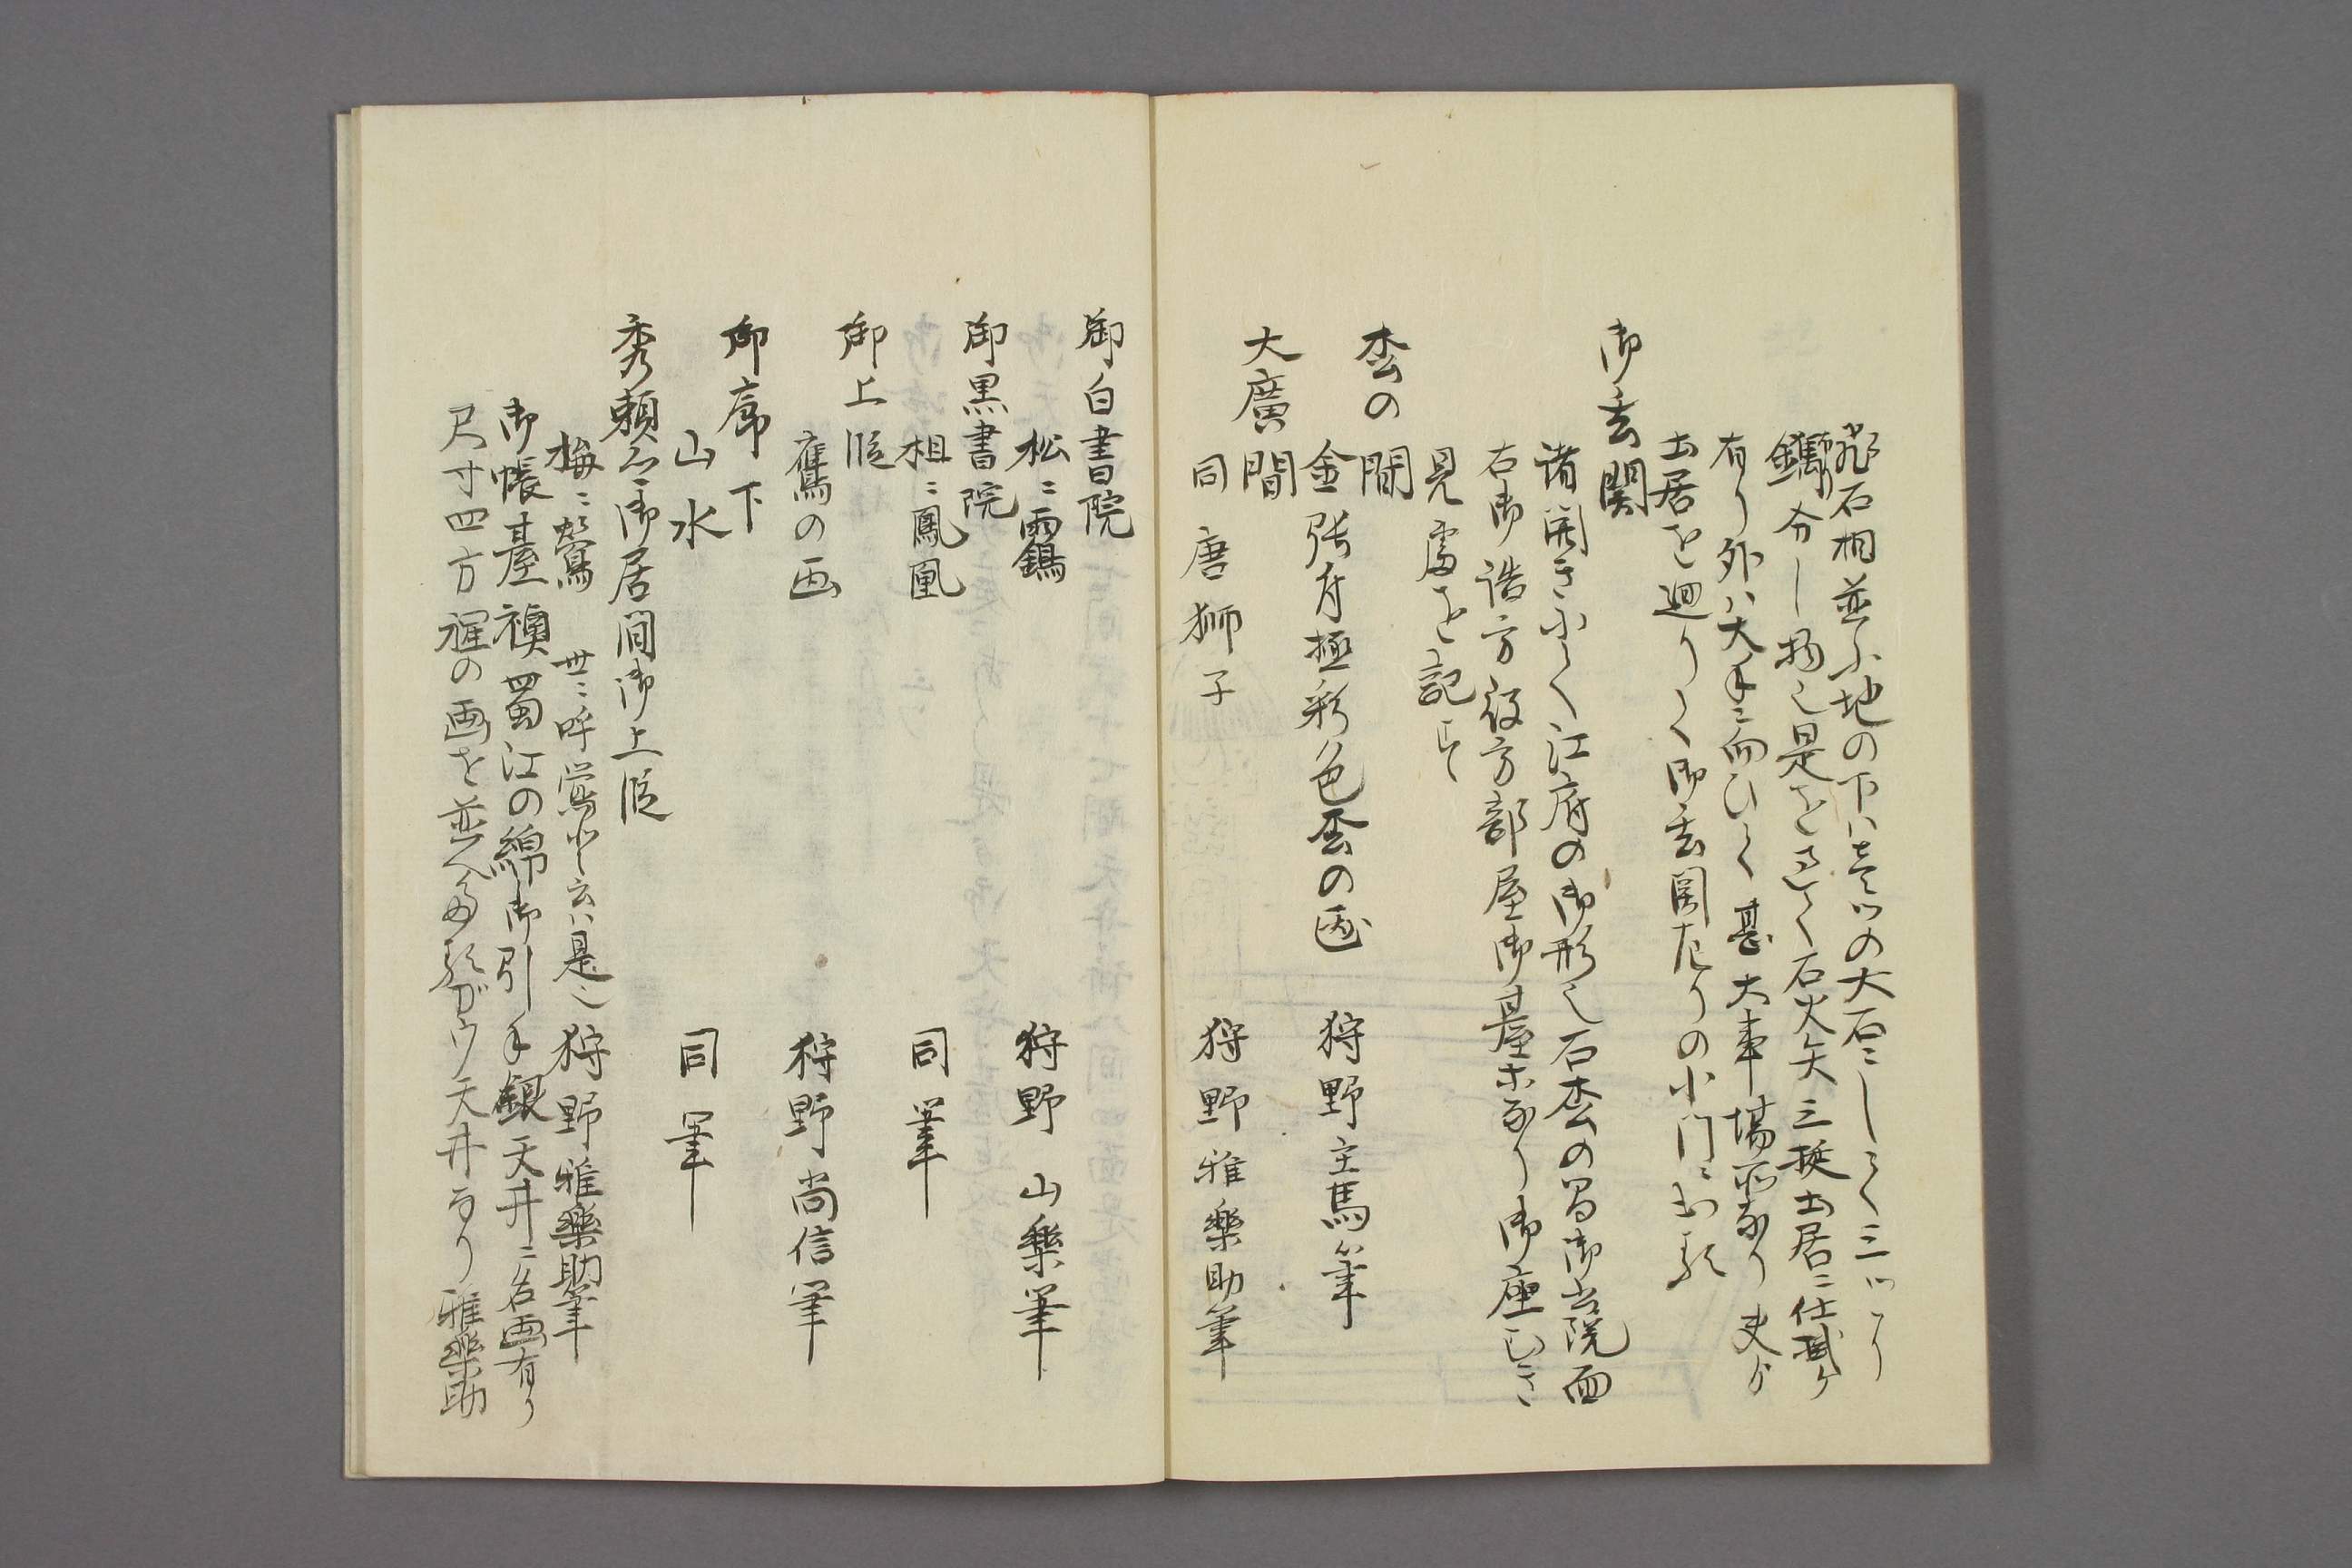 飛石相並ふ地の下ハ壱ツの大石ニして三ツニわり
鑄分し物也是を過て石火矢三挺土居ニ仕掛ケ
有り外ハ大手ニ向ひて甚大事場所なり夫ゟ
土居を廻りて御玄関左りの小門ニ出る
御玄関
諸開きにて江府の御形也石松の間御書院面
右御諸方役方部屋御臺所なり御座しき
見處を記す
松の間
金張付極彩色松の画 狩野主馬筆
大廣間
同唐獅子 狩野雅樂助筆
御白書院
松ニ靏 狩野山樂筆
御黒書院
桐ニ鳳凰 同筆
御上段
鷹の画 狩野尚信筆
御廊下
山水 同筆
秀頼公御居間御上段
梅ニ鶯 世ニ呼鶯と云ハ是也 狩野雅樂助筆
御帳臺襖蜀江の綿御引手銀天井ニ名画有り
尺寸四方程の画を並へたるガウ天井なり雅樂助